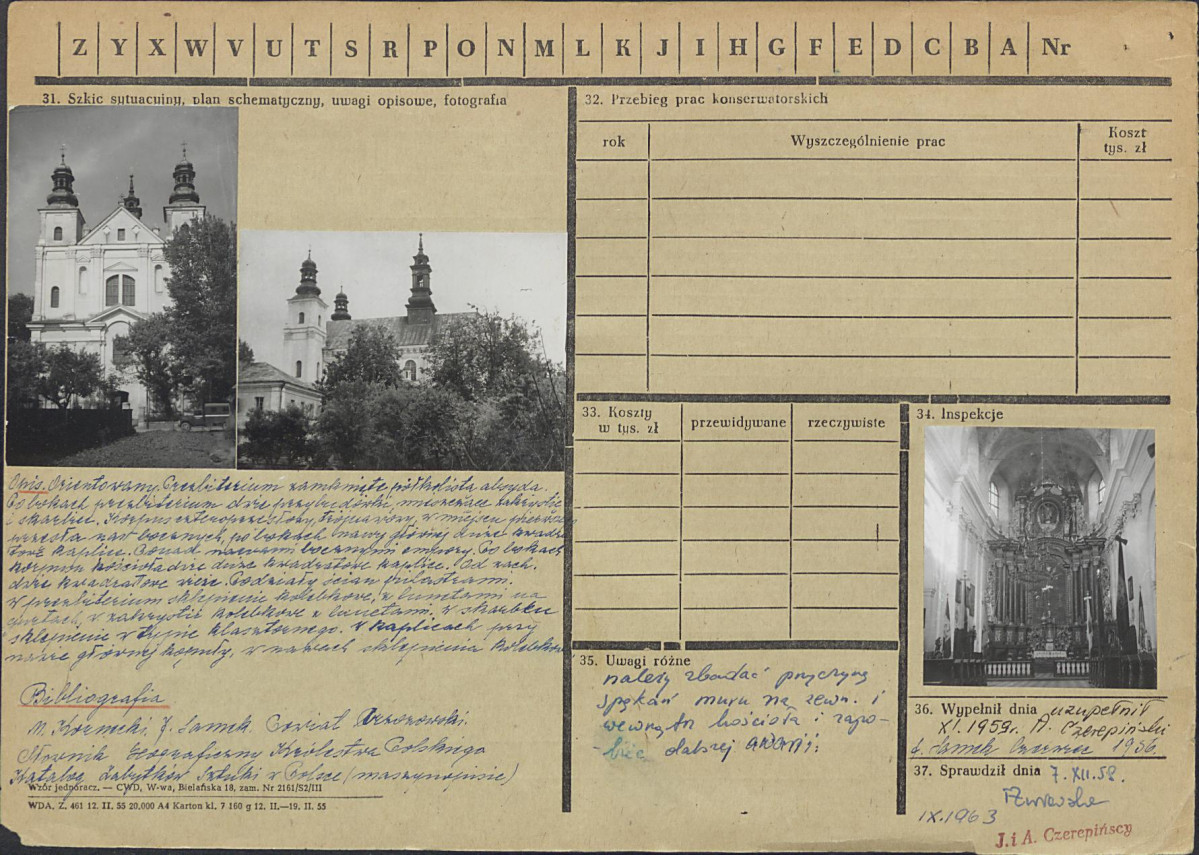 Z Y X W V U T S R P O N M L K J I H G F E D C B A Nr
31. Szkic sytuacyjny, plan schematyczny, uwagi opisowe, fotografia
Opis. Orientowany. Prezbiterium zamknięte półkolistą absydą.
Po bokach prezbiterium dwie przybudówki, mieszczące zakrystię
i skarbiec. Korpus czteroprzęsłowy, trójnawowy, w miejscu pierwszego
przęsła naw bocznych, po bokach nawy głównej duże kwadra-
towe kaplice. Ponad nawami bocznymi empory. Po bokach
korpusu kościoła dwie duże kwadratowe kaplice. Od zach.
dwie kwadratowe wieże. Podziały ścian pilastrami.
W prezbiterium sklepienie kolebkowe, z lunetami na
gurtach, w zakrystii kolebkowe z lunetami, w skarbcu
sklepienie w typie klasztornego. W kaplicach przy
nawie głównej kopuły, w nawach sklepienia kolebkowe
Bibliografia
M. Kornecki, J. Samek Powiat Brzozowski.
Słownik Geograficzny Królestwa Polskiego
Katalog Zabytków Sztuki w Polsce (maszynopisie)
Wzór jednoracz. — CWD, W-wa, Bielańska 18, zam. Nr 2161/S2/III
WDA. Z. 461 12. II. 55 20.000 A4 Karton kl. 7 160 g 12. II.—19. II. 55
32. Przebieg prac konserwatorskich
rok
Wyszczególnienie prac
Koszt
tys. zł
33. Koszty
w tys. zł
przewidywane
rzeczywiste
34. Inspekcje
35. Uwagi różne
należy zbadać przyczyny
spękań muru na zewn. i
wewnątrz kościoła i zapo-
biec dalszej
36. Wypełnił dnia uzupełnił
XI. 1959r. A. Czerepiński
J. Samek Czerwiec 1956.
37. Sprawdził dnia 7. XII. 58.
IX. 1963
J. i A. Czerepińscy